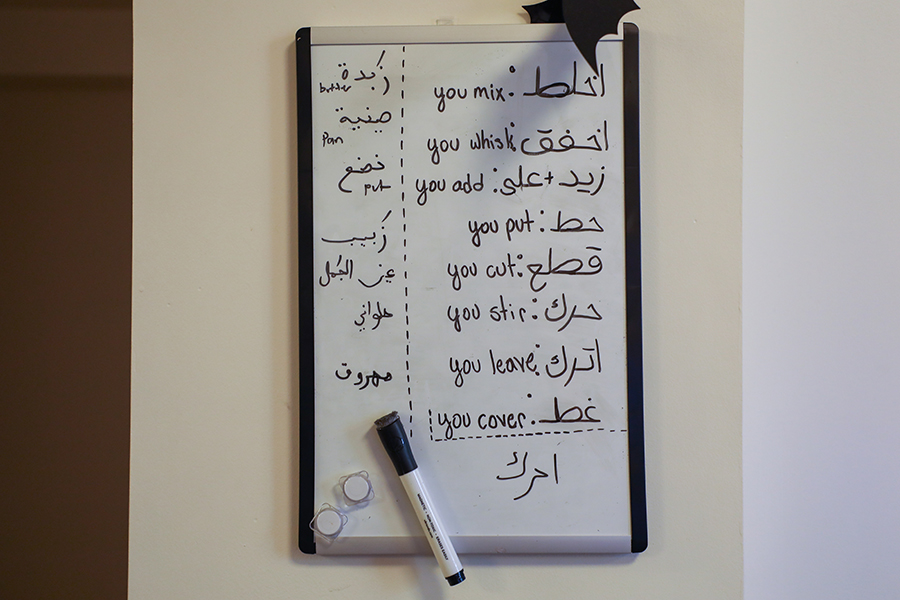 اخلط : you mix
اخفق : you whisk
زيد + على : you add
حط : you put
قطع : you cut
حرك : you stir
اترك : you leave
غط : you cover
احرك
زبدة
butter
صينية
Pan
نضع
put
زبيب
عين الجمل
حلواني
مهروق